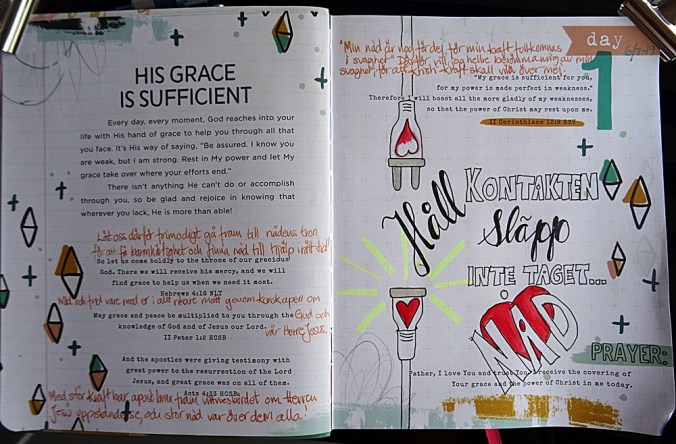 HIS GRACE
IS SUFFICIENT
Every day, every moment, God reaches into your
life with His hand of grace to help you through all that
you face. It's His way of saying, "Be assured. I know you
are weak, but I am strong. Rest in My power and let My
grace take over where your efforts end."
There isn't anything He can't do or accomplish
through you, so be glad and rejoice in knowing that
wherever you lack, He is more than able!
Låt oss därför frimodigt gå fram till nådens tron
för att få barmhärtighet och finna nåd till hjälp i rätt tid!
So let us come boldly to the throne of our gracious
God. There we will receive his mercy, and we will
find grace to help us when we need it most.
Hebrews 4:16 NLT
Nåd och frid vare med er i allt rikare mått genom kunskapen om
Gud och
vår Herre Jesus.
May grace and peace be multiplied to you through the
knowledge of God and of Jesus our Lord.
II Peter 1:2 HCSB
And the apostles were giving testimony with
great power to the resurrection of the Lord
Jesus, and great grace was on all of them.
Acts 4:33 HCSB
Med stor kraft bar apostlarna fram vittnesbördet om Herren
Jesu uppståndelse, och stor nåd var över dem alla!
"Min nåd är nog för dig, för min kraft fullkomnas
i svaghet." Därför vill jag hellre berömma mig av min
svaghet, för att Kristi kraft skall vila över mig."
day
1
6/7-19
"My grace is sufficient for you,
for my power is made perfect in weakness."
Therefore I will boast all the more gladly of my weaknesses,
so that the power of Christ may rest upon me.
II Corinthians 12:9 ESV
Håll KONTAKTEN
Släpp
INTE TAGET...
NÅD
PRAYER:
Father, I love You and trust You. I receive the covering of
Your grace and the power of Christ in me today.